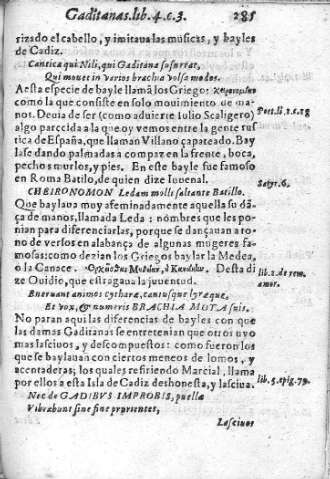 Gaditanas.lib.4.c.3. 285
rizado el cabello, y imitaua las musicas, y bayles
de Cadiz.
Cantica qui Nili, qui Gaditana susurrat,
Qui mouet in varios brachia volsa modos.
A esta especie de bayle llamã los Griegos
como la que consiste en solo mouimiento de ma-
nos. Deuia de ser (como aduierte Iulio Scaligero)
Poet. li. 1. c. 18
algo parecida a la que oy vemos entre la gente rus
tica de España, que llaman Villano çapateado. Bay
lase dando palmadas a compaz en la frente, boca,
pechos muslos, y pies. En este bayle fue famoso
en Roma Batilo, de quien dize Iuuenal.
Satyr. 6.
CHEIRONOMON Ledam molli saltante Batillo.
Que baylaua muy afeminadamente aquella su dã
ça de manos, llamada Leda: nombres que les po-
nian para diferenciarlas, porque se dançauan a to-
no de versos en alabança de algunas mugeres fa-
mosas: como dezian los Griegos baylar la Medea,
o la Canace. Desta di
ze Ouidio, que estragaua la juuentud.
lib. 2. de rem.
amor.
Eneruant animos cytharæ, cantusque lyræque,
Et vox, & numeris BRACHIA MOTA suis.
No paran aqui las diferencias de bayles con que
las damas Gaditanas se entretenian que otros uvo
mas lasciuos, y descompuestos: como fueron los
que se baylauan con ciertos meneos de lomos, y
acentaderas; los quales refiriendo Marcial, llama
por ellos a esta Isla de Cadiz deshonesta, y lasciua.
lib. 5. epig. 79.
Nec de GADIBVS IMPROBIS, puellæ
Vibrabunt sine fine prurientes,
Lasciuos